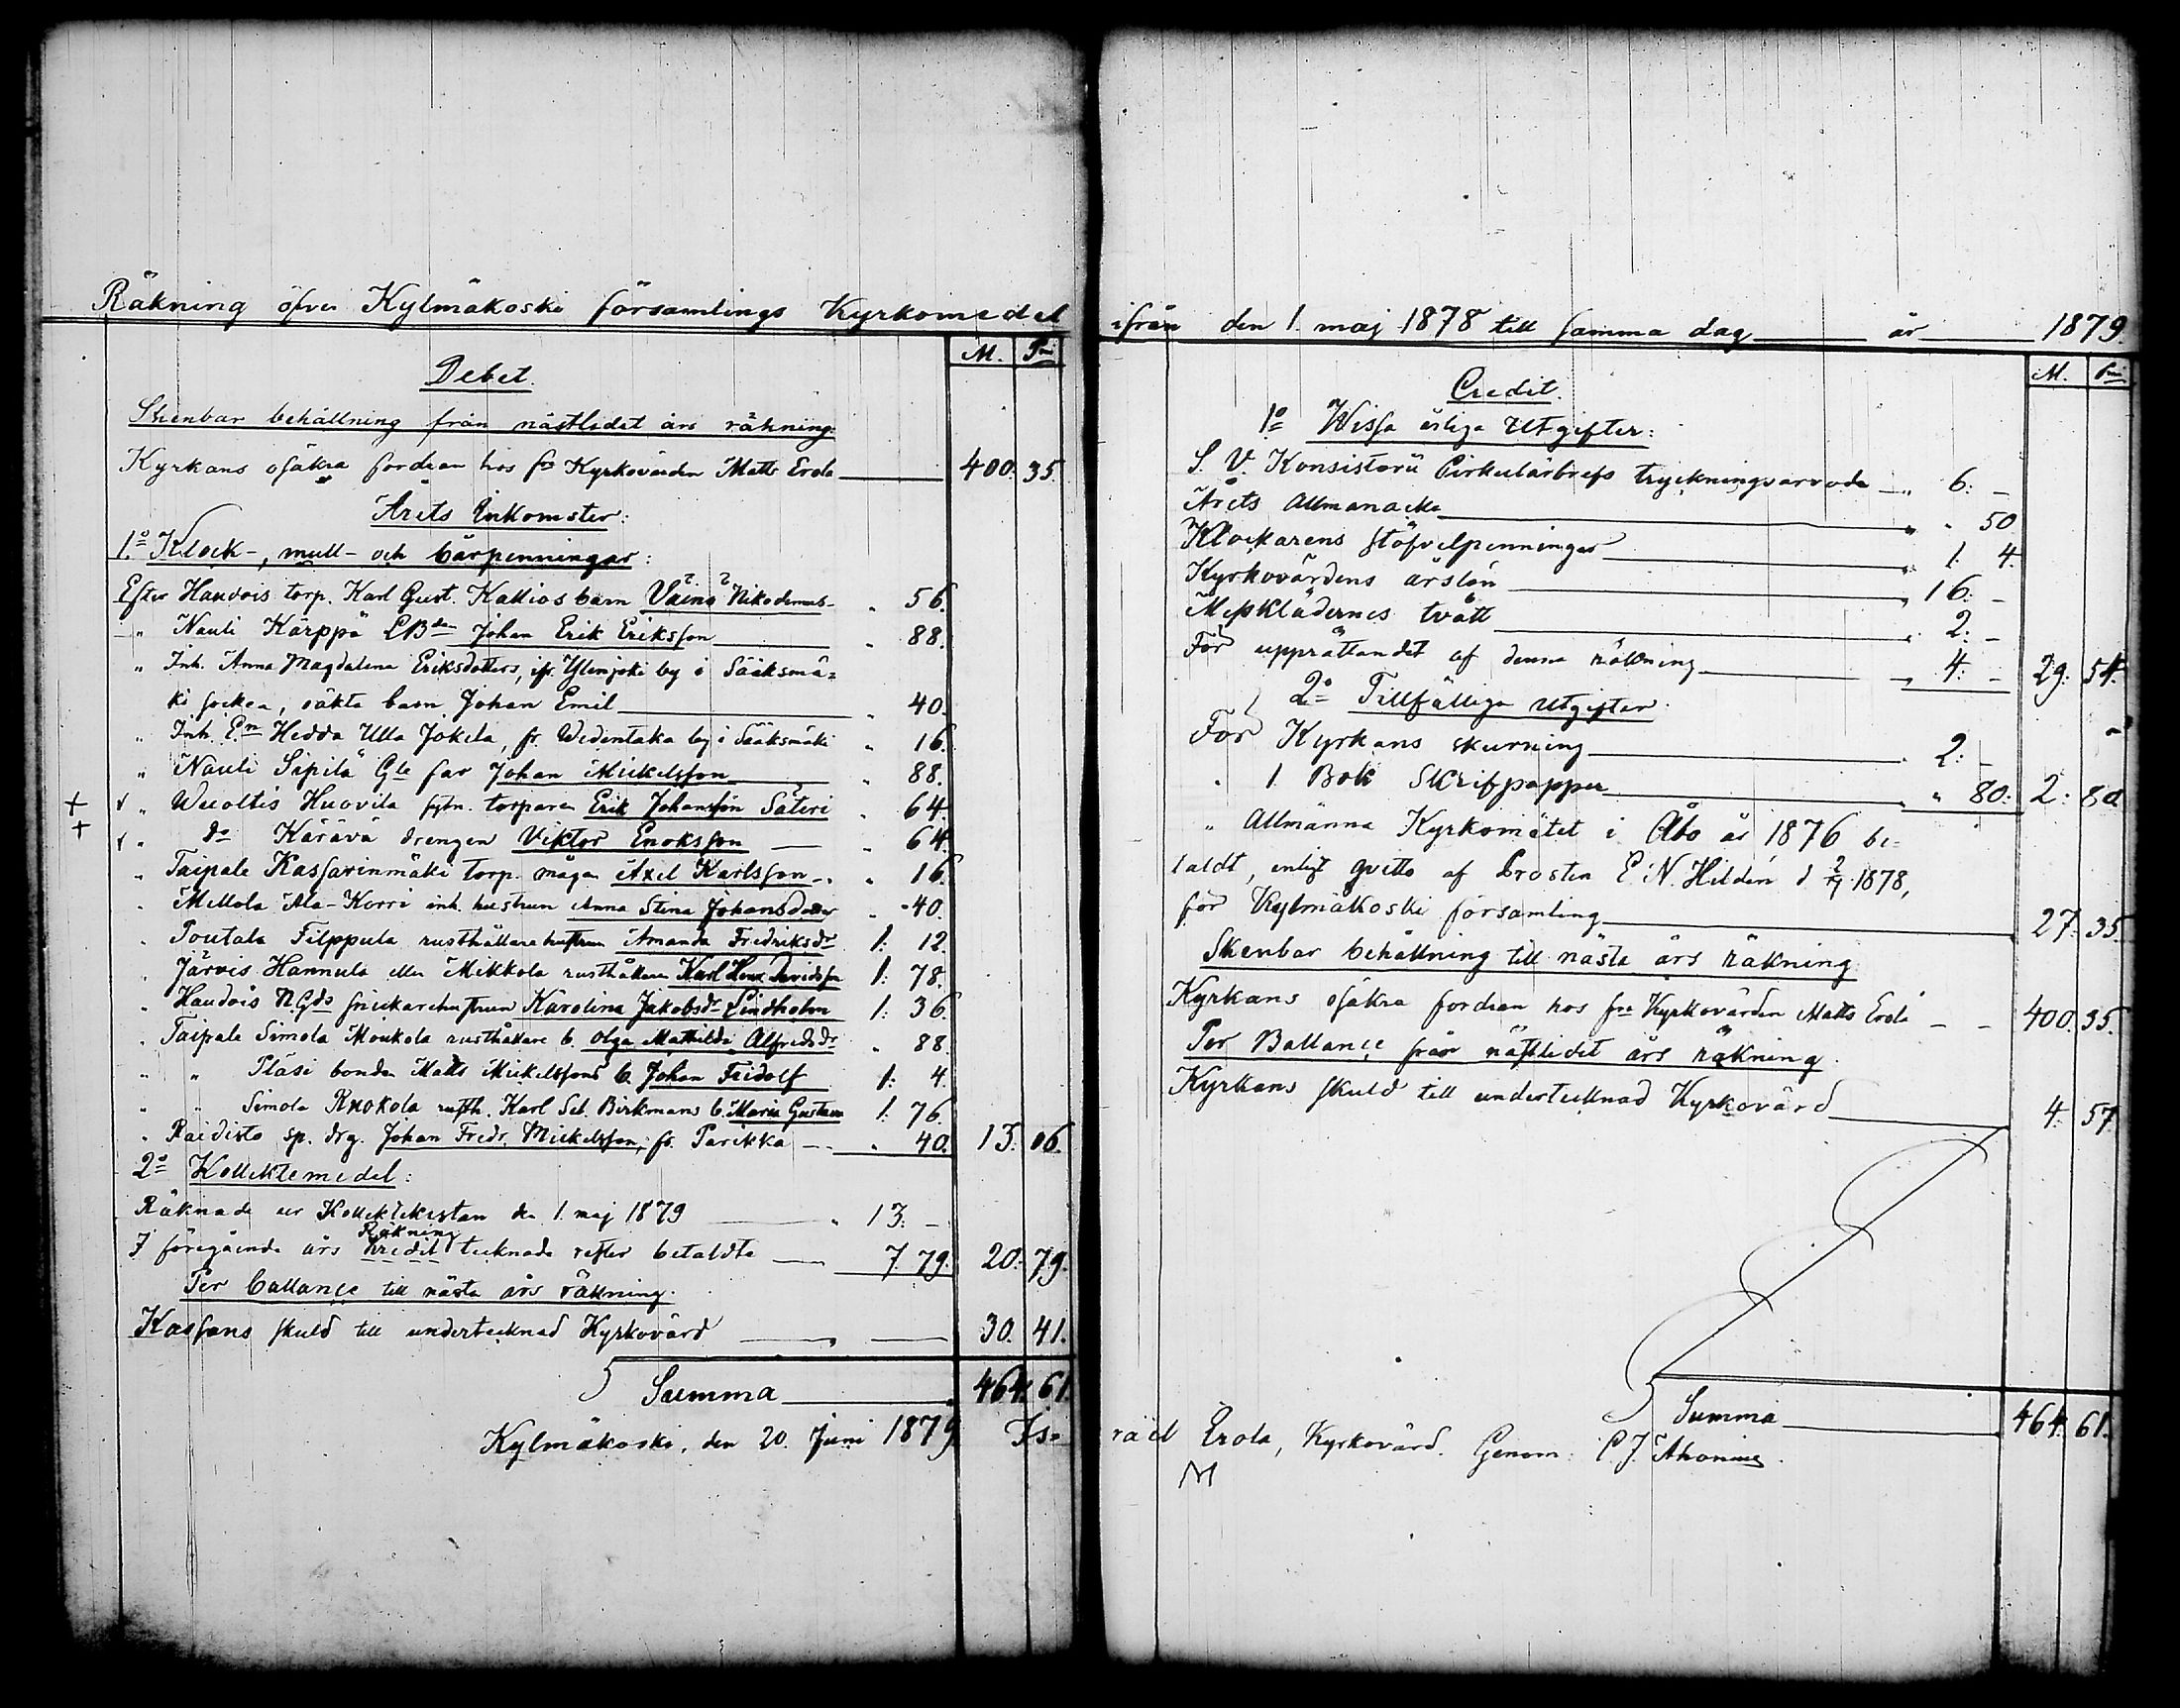 Räkning öfver Kylmäkoski församlings Kyrkomedel
M. Pni
Debet.
Skenbar behållning från nästledet års räkning:
Kyrkans osäkra fordran hos f.e Kyrkovärden Matts Erola 400: 35.
Årets Inkomster:
1:o Klock-, mull- och bårpenningar:
Efter Haudois torp. Karl Gust. Kallios barn Väinö Nikodemus " 56.
" Nauli Kärppä LBden Johan Erik Eriksson " 88.
" Inh. Anna Magdalena Eriksdotters, ifr. Ylenjoki by i Sääksmä=
ki socken, oäkta barn Johan Emil " 40.
" Inh. E.n Hedda Ulla Jokela, fr. Wedentaka by i Sääksmäki " 16.
" Nauli Sipilä Gle far Johan Mickelsson " 88.
+ v " Wuoltis Huovila torparen Erik Johansson Säteri " 64.
+ v " d:o Kärävä drengen Viktor Enoksson " 64.
" Taipale Kassarinmäki torp. måga Axel Karlsson " 16.
" Mellola Ala-Korri inh. hustrun Anna Stina Johansdotter " 40.
" Toutala Filppula rusthållare hustrun Amanda Fredriksdr 1: 12.
" Järvis Hannula eller Mikkola rusthållaren Karl Henr. Davidsson 1: 78.
" Haudois NGds snickarehustrun Karolina Jakobsdr Lindholm 1: 36.
" Taipale Simola Moukola rusthållare b. Olga Mathilda Alfredsdr " 88.
" " Pläsi bonden Matts Mickelssons b. Johan Fridolf 1: 4.
" " Simola Knokola rusth. Karl Seb. Birkmans b. Maria Gustava 1: 76.
" Raidisto sp. drg. Johan Fredr. Mickelsson, fr. Parikka " 40. 13: 06.
2:o Kollektemedel:
Räknade ur Kollektekistan den 1. maj 1879 " 13: -
Räkning
I föregående års Kredit tecknade rester betaldte 7. 79. 20: 79.
Per ballance till nästa års räkning.
Kassans skuld till undertecknad Kyrkovärd 30. 41.
Summa 464. 61.
Kylmäkoski, den 20. Juni 1879 Is=
ifrån den 1. maj 1878 till samma dag år 1879.
M. Pni
Credit.
1:o Wissa årliga Utgifter:
S. V. Konsistorii Cirkulärbrefs tryckningsarvode " 6: -
Årets Allmanacka " " 50
Klockarens stöfvelpenningar " 1: 4.
Kyrkovärdens årslön " 16: -
Messklädernes tvätt " 2: -
För upprättandet af denna räkning " 4: - 29: 54.
2:o Tillfälliga utgifter.
För Kyrkans skurning " 2: -
" 1. Bok Skrifpapper " " 80: 2: 80
" Allmänna Kyrkomötet i Åbo år 1876 be=
taldt, enligt qvitto af Prosten E. N. Hildén d. 2/7 1878,
för Kylmäkoski församling 27: 35.
Skenbar behållning till nästa års räkning
Kyrkans osäkra fordran hos f.e Kyrkovärden Matts Erola 400. 35.
Per Ballance från nästledet års räkning.
Kyrkans skuld till undertecknad Kyrkovärd 4: 57.
Summa 464. 61.
raël Erola, Kyrkovärd. Genom: C. J. Ahonius.